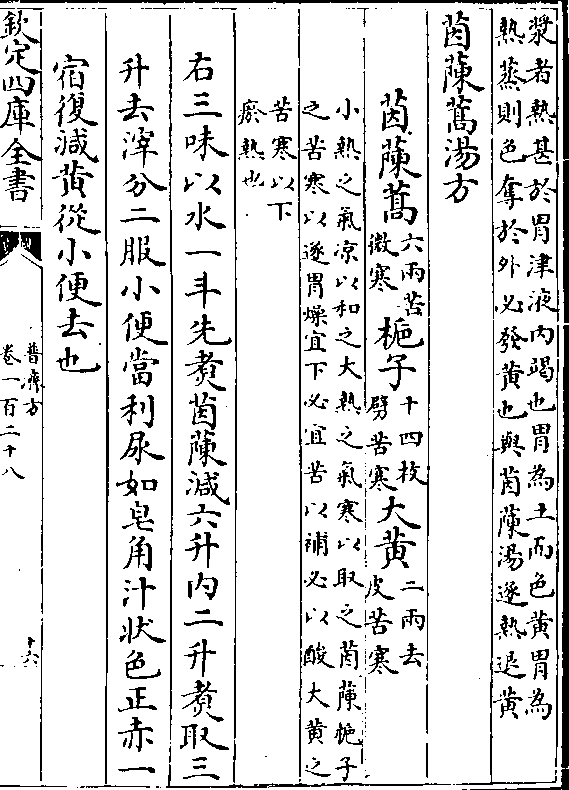 漿者熱甚於胃津液内竭也胃為土而色黄胃為
熱蒸則色奪於外必發黄也與茵蔯湯逐熱退黄
茵蔯蒿湯方
茵蔯蒿六兩苦微寒梔子十四枚劈苦寒大黄二兩去皮苦寒
小熱之氣凉以和之大熱之氣寒以取之茵蔯梔子
之苦寒以逐胃燥宜下必宜苦以補必以酸大黄之
苦寒以下
瘀熱也
右三味以水一斗先煮茵蔯減六升内二升煮取三
升去滓分二服小便當利尿如皂角汁狀色正赤一
宿復減黄從小便去也
欽定四庫全書
普濟方
卷一百二十八
十六